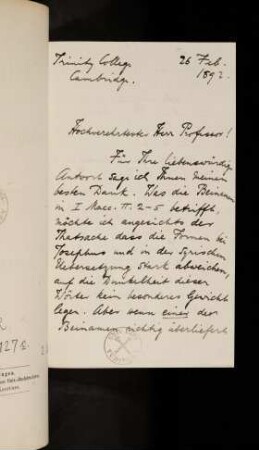 Trinity College
Cambridge.
26 Feb.
1892.
Hochverehrtester Herr Professor!
Für Ihre liebenswürdige
Antwort sage ich Ihnen meinen
besten Dank. Was die Beinamen
in I Macc. II. 2-5 betrifft,
möchte ich angesichts der
Thatsache dass die Formen bei
Josephus und in der Syrischen
Uebersetzung stark abweichen,
auf die Dunkelheit dieser
Wörter kein besonderes Gewicht
legen. Aber wenn einer der
Beinamen richtig überliefert